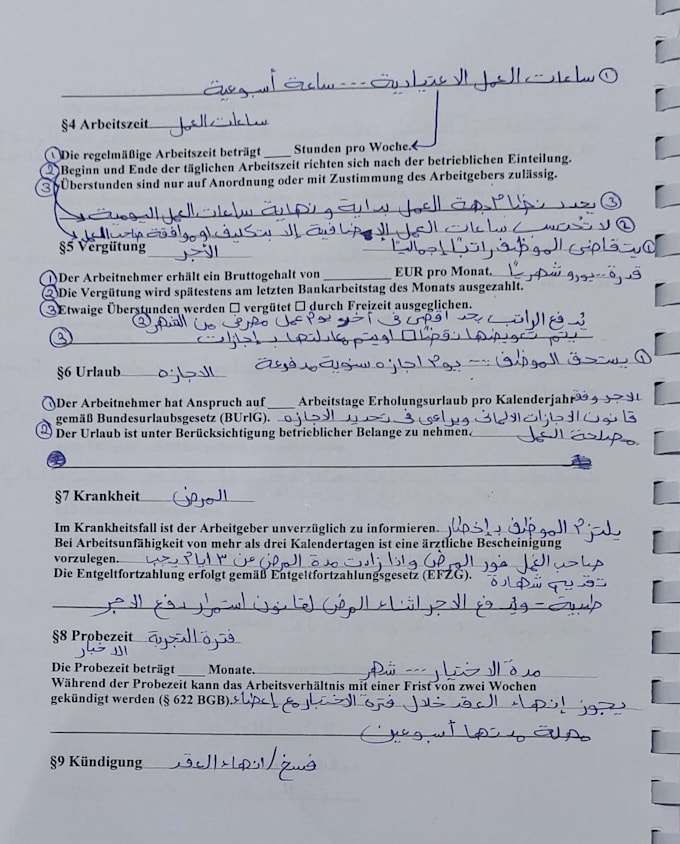 ① ساعات العمل الاعتيادية --- ساعة أسبوعية
§4 Arbeitszeit ساعات العمل
① Die regelmäßige Arbeitszeit beträgt ____ Stunden pro Woche.
② Beginn und Ende der täglichen Arbeitszeit richten sich nach der betrieblichen Einteilung.
③ Überstunden sind nur auf Anordnung oder mit Zustimmung des Arbeitgebers zulässig.
③ يحدد نظام جهة العمل بداية و نهاية ساعات العمل اليومية
② لا تحتسب ساعات العمل الإضافية إلا بتكليف او موافقة صاحب العمل
§5 Vergütung الأجر ① يتقاضى الموظف راتبًا إجماليًا
① Der Arbeitnehmer erhält ein Bruttogehalt von ________ EUR pro Monat. قدرة -- يورو شهريًا
② Die Vergütung wird spätestens am letzten Bankarbeitstag des Monats ausgezahlt.
③ Etwaige Überstunden werden ☐ vergütet ☐ durch Freizeit ausgeglichen.
② يُدفع الراتب بحد اقصى في أخر يوم عمل مصرفي من الشهر
③ يتم تعويضها نقدًا ☐ او يتم معادلتها بإجازات
① يستحق الموظف --- يوم اجازه سنوية مدفوعة
§6 Urlaub الاجازه
① Der Arbeitnehmer hat Anspruch auf ____ Arbeitstage Erholungsurlaub pro Kalenderjahr الاجر وفق
gemäß Bundesurlaubsgesetz (BUrlG). قانون الاجازات الالماني ويراعى في تحديد الاجازه
② Der Urlaub ist unter Berücksichtigung betrieblicher Belange zu nehmen. مصلحة العمل
§7 Krankheit المرض
Im Krankheitsfall ist der Arbeitgeber unverzüglich zu informieren. يلتزم الموظف بإخطار
Bei Arbeitsunfähigkeit von mehr als drei Kalendertagen ist eine ärztliche Bescheinigung
vorzulegen. صاحب العمل فور المرض واذا زادت مدة المرض عن ٣ ايام يجب
Die Entgeltfortzahlung erfolgt gemäß Entgeltfortzahlungsgesetz (EFZG). تقديم شهادة
طبية - ويُدفع الاجر اثناء المرض لقانون استمرار دفع الاجر
§8 Probezeit فترة التجربة
الاختبار
Die Probezeit beträgt ____ Monate. مدة الاختبار --- شهر
Während der Probezeit kann das Arbeitsverhältnis mit einer Frist von zwei Wochen
gekündigt werden (§ 622 BGB). يجوز إنهاء العقد خلال فترة الاختبار مع إعطاء
مهلة مدتها أسبوعين
§9 Kündigung فسخ / انهاء العقد